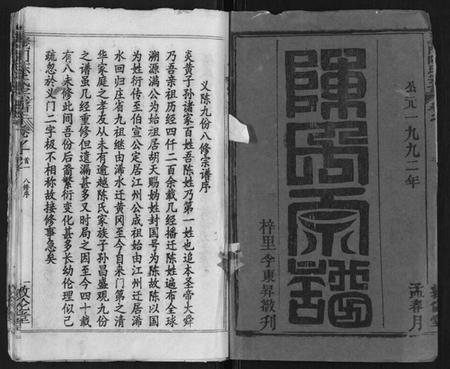 公元一九九二年
陳氏宗譜
孟春月
梓里李東昇敬刊
敦倫堂
义陈九份八修宗谱序
炎黄子孙诸家百姓吾陈姓乃第一姓也追本圣帝大舜
乃吾亲祖历经四仟二百余载几经播迁陈姓遍布全球
溯源满公为始祖居胡天赐妫姓封国号为陈故陈以国
为姓衍传至伯宣公定居江州公成祖始由江州迁居浠
水回归庄省九祖继由浠水迁黄冈至今自来门第之清
华家庭之孝友从未有逾越陈氏家族子孙昌盛观九份
之谱虽几经重修但遗漏甚多又时局之因至今四十载
有八未修此间吾份后裔繁衍变化甚多长幼伦理似已
疏忽於义门二字极不相称故接修事急矣
卷之一首
八修序
敦伦堂